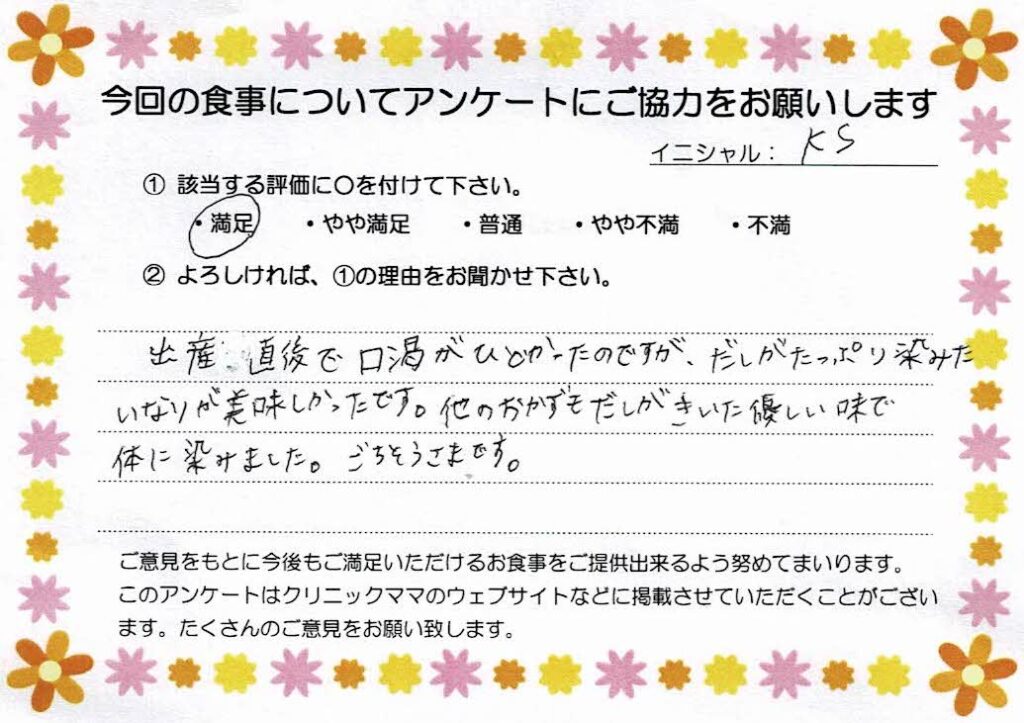 今回の食事についてアンケートにご協力をお願いします
イニシャル: KS
① 該当する評価に○を付けて下さい。
・満足 ・やや満足 ・普通 ・やや不満 ・不満
② よろしければ、①の理由をお聞かせ下さい。
出産直後で口渇がひどかったのですが、だしがたっぷり染みた
いなりが美味しかったです。他のおかずもだしがきいた優しい味で
体に染みました。ごちそうさまです。
ご意見をもとに今後もご満足いただけるお食事をご提供出来るよう努めてまいります。
このアンケートはクリニックママのウェブサイトなどに掲載させていただくことがござい
ます。たくさんのご意見をお願い致します。